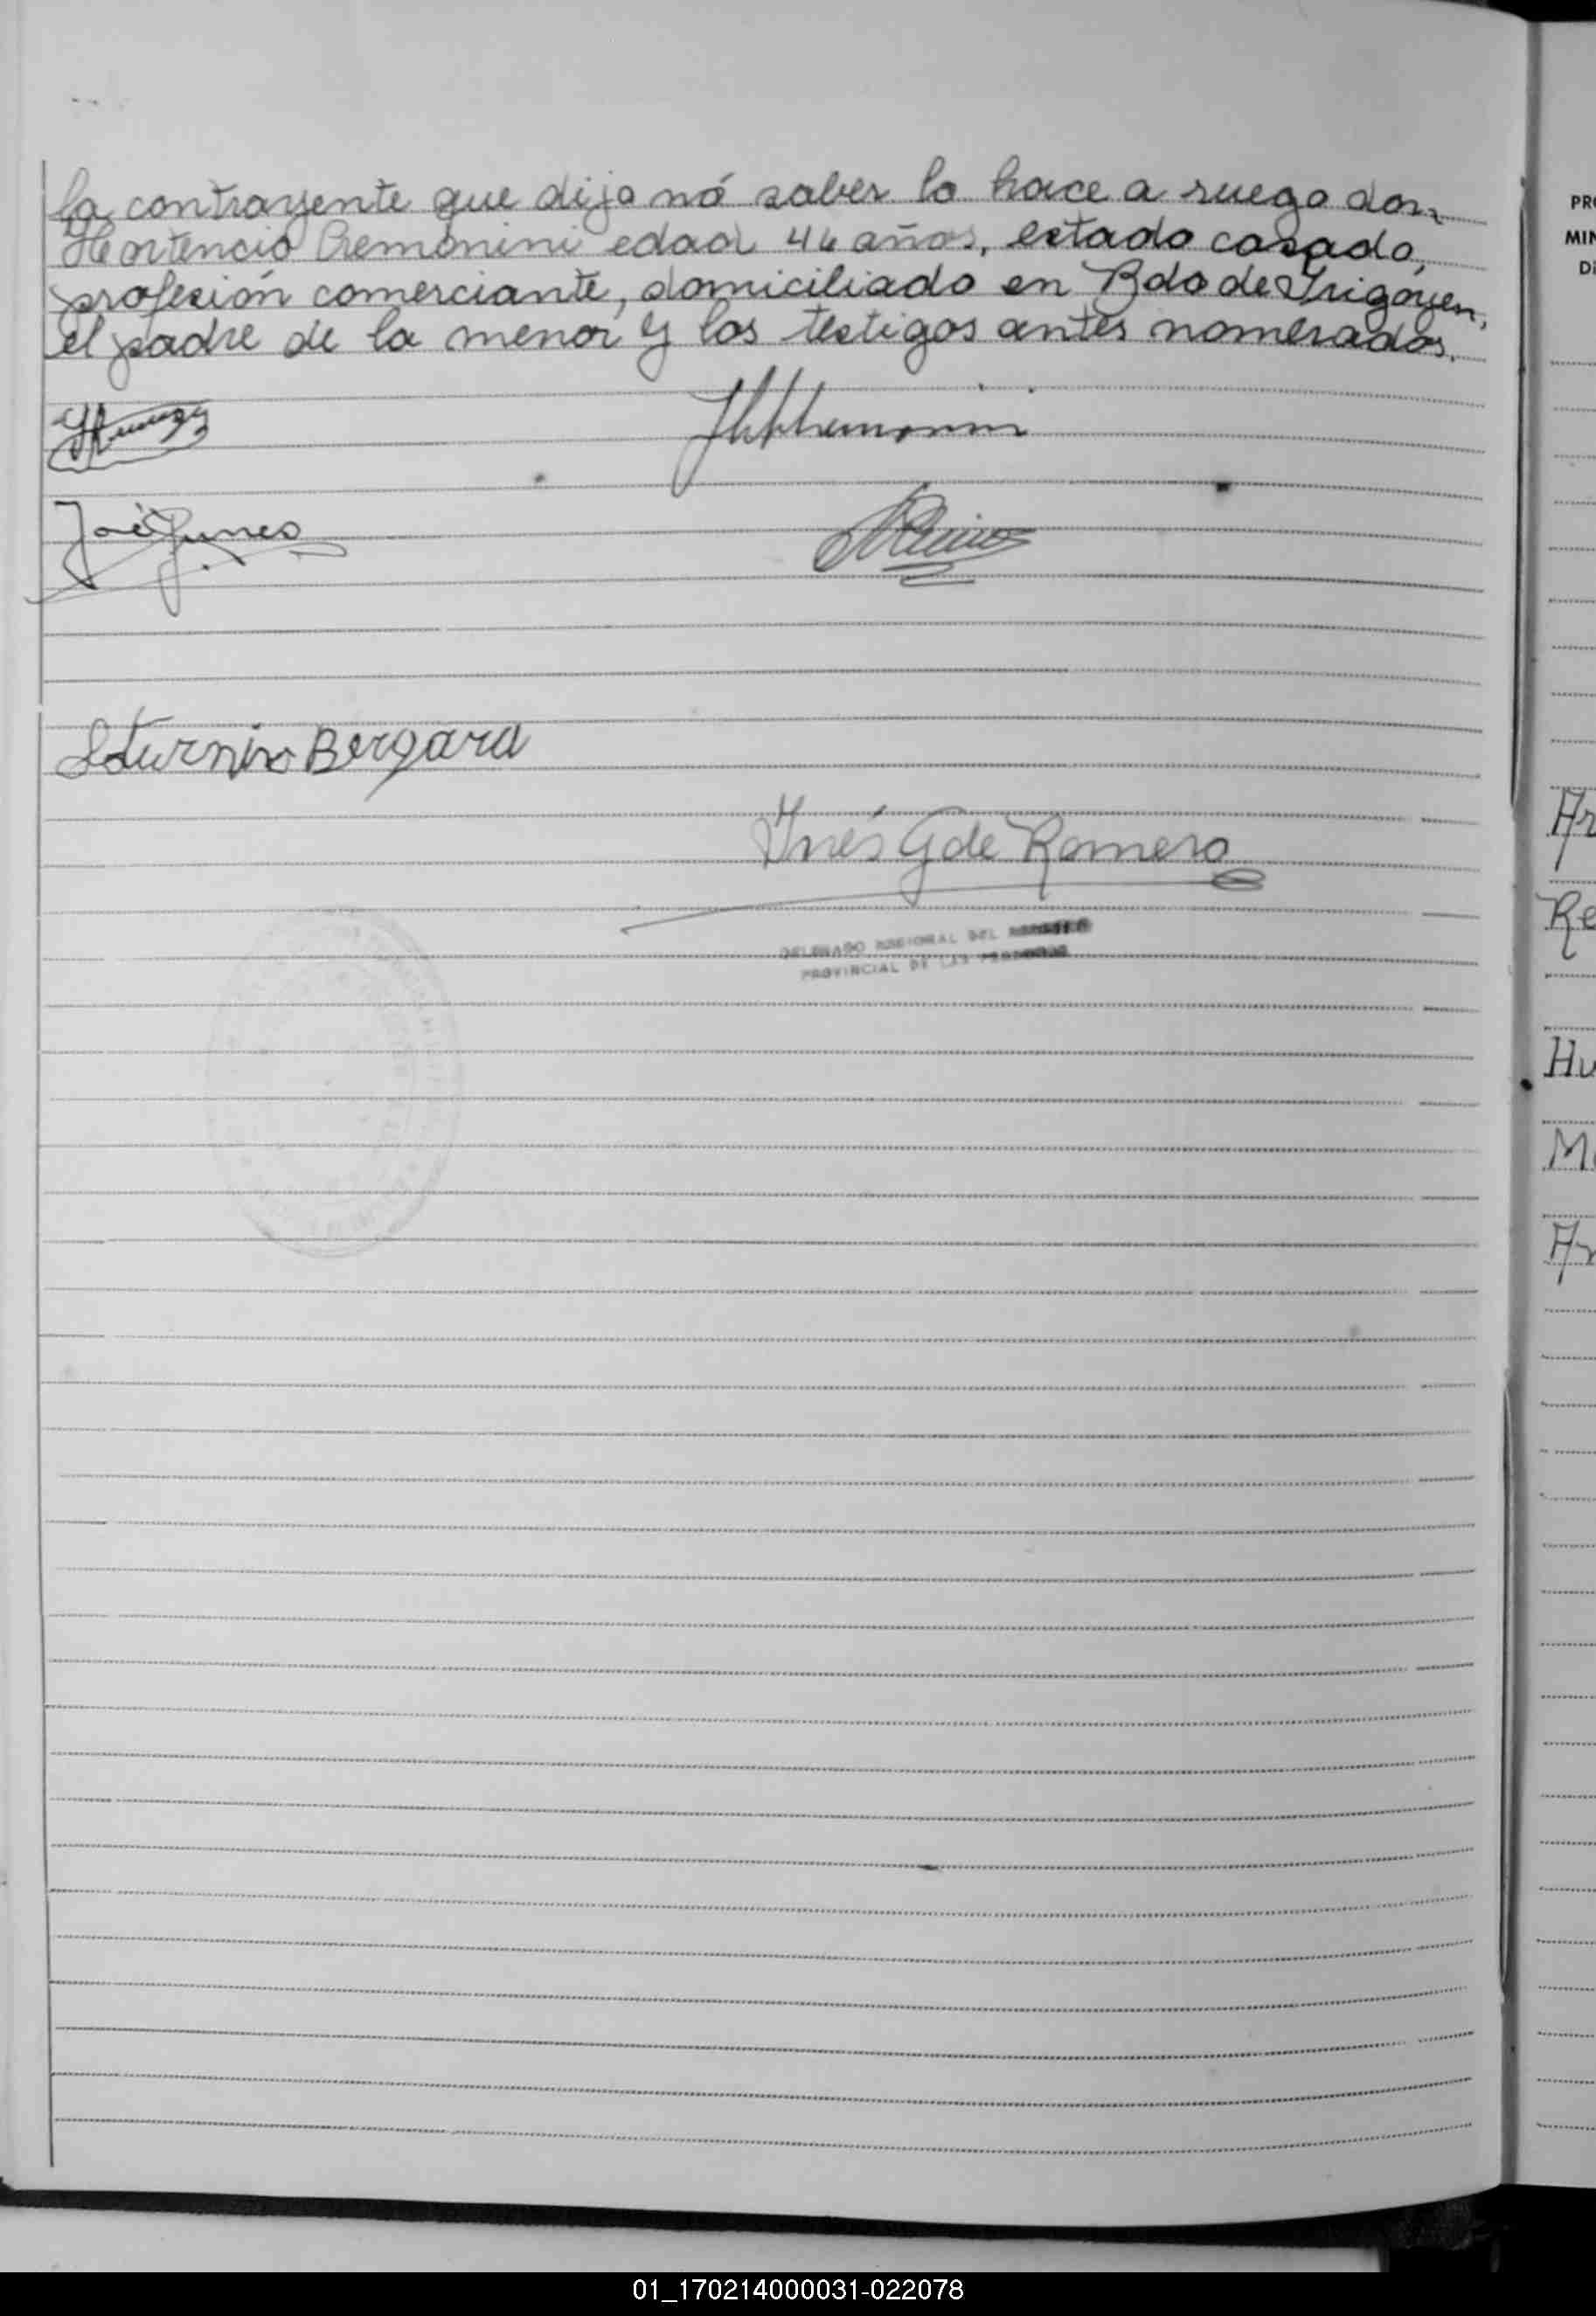 la contrayente que dijo nó saber lo hace a ruego don
Hortencio Cremonini edad 46 años, estado casado,
profesión comerciante, domiciliado en Bdo de Irigoyen,
el padre de la menor y los testigos antes nomerados.
José Funes
Saturnino Bergara
Inés G de Romero
DELEGADO REGIONAL DEL REGISTRO
PROVINCIAL DE LAS PERSONAS
PR
MIN
Di
Ar
Re
Hu
M
Ar
01_170214000031-022078